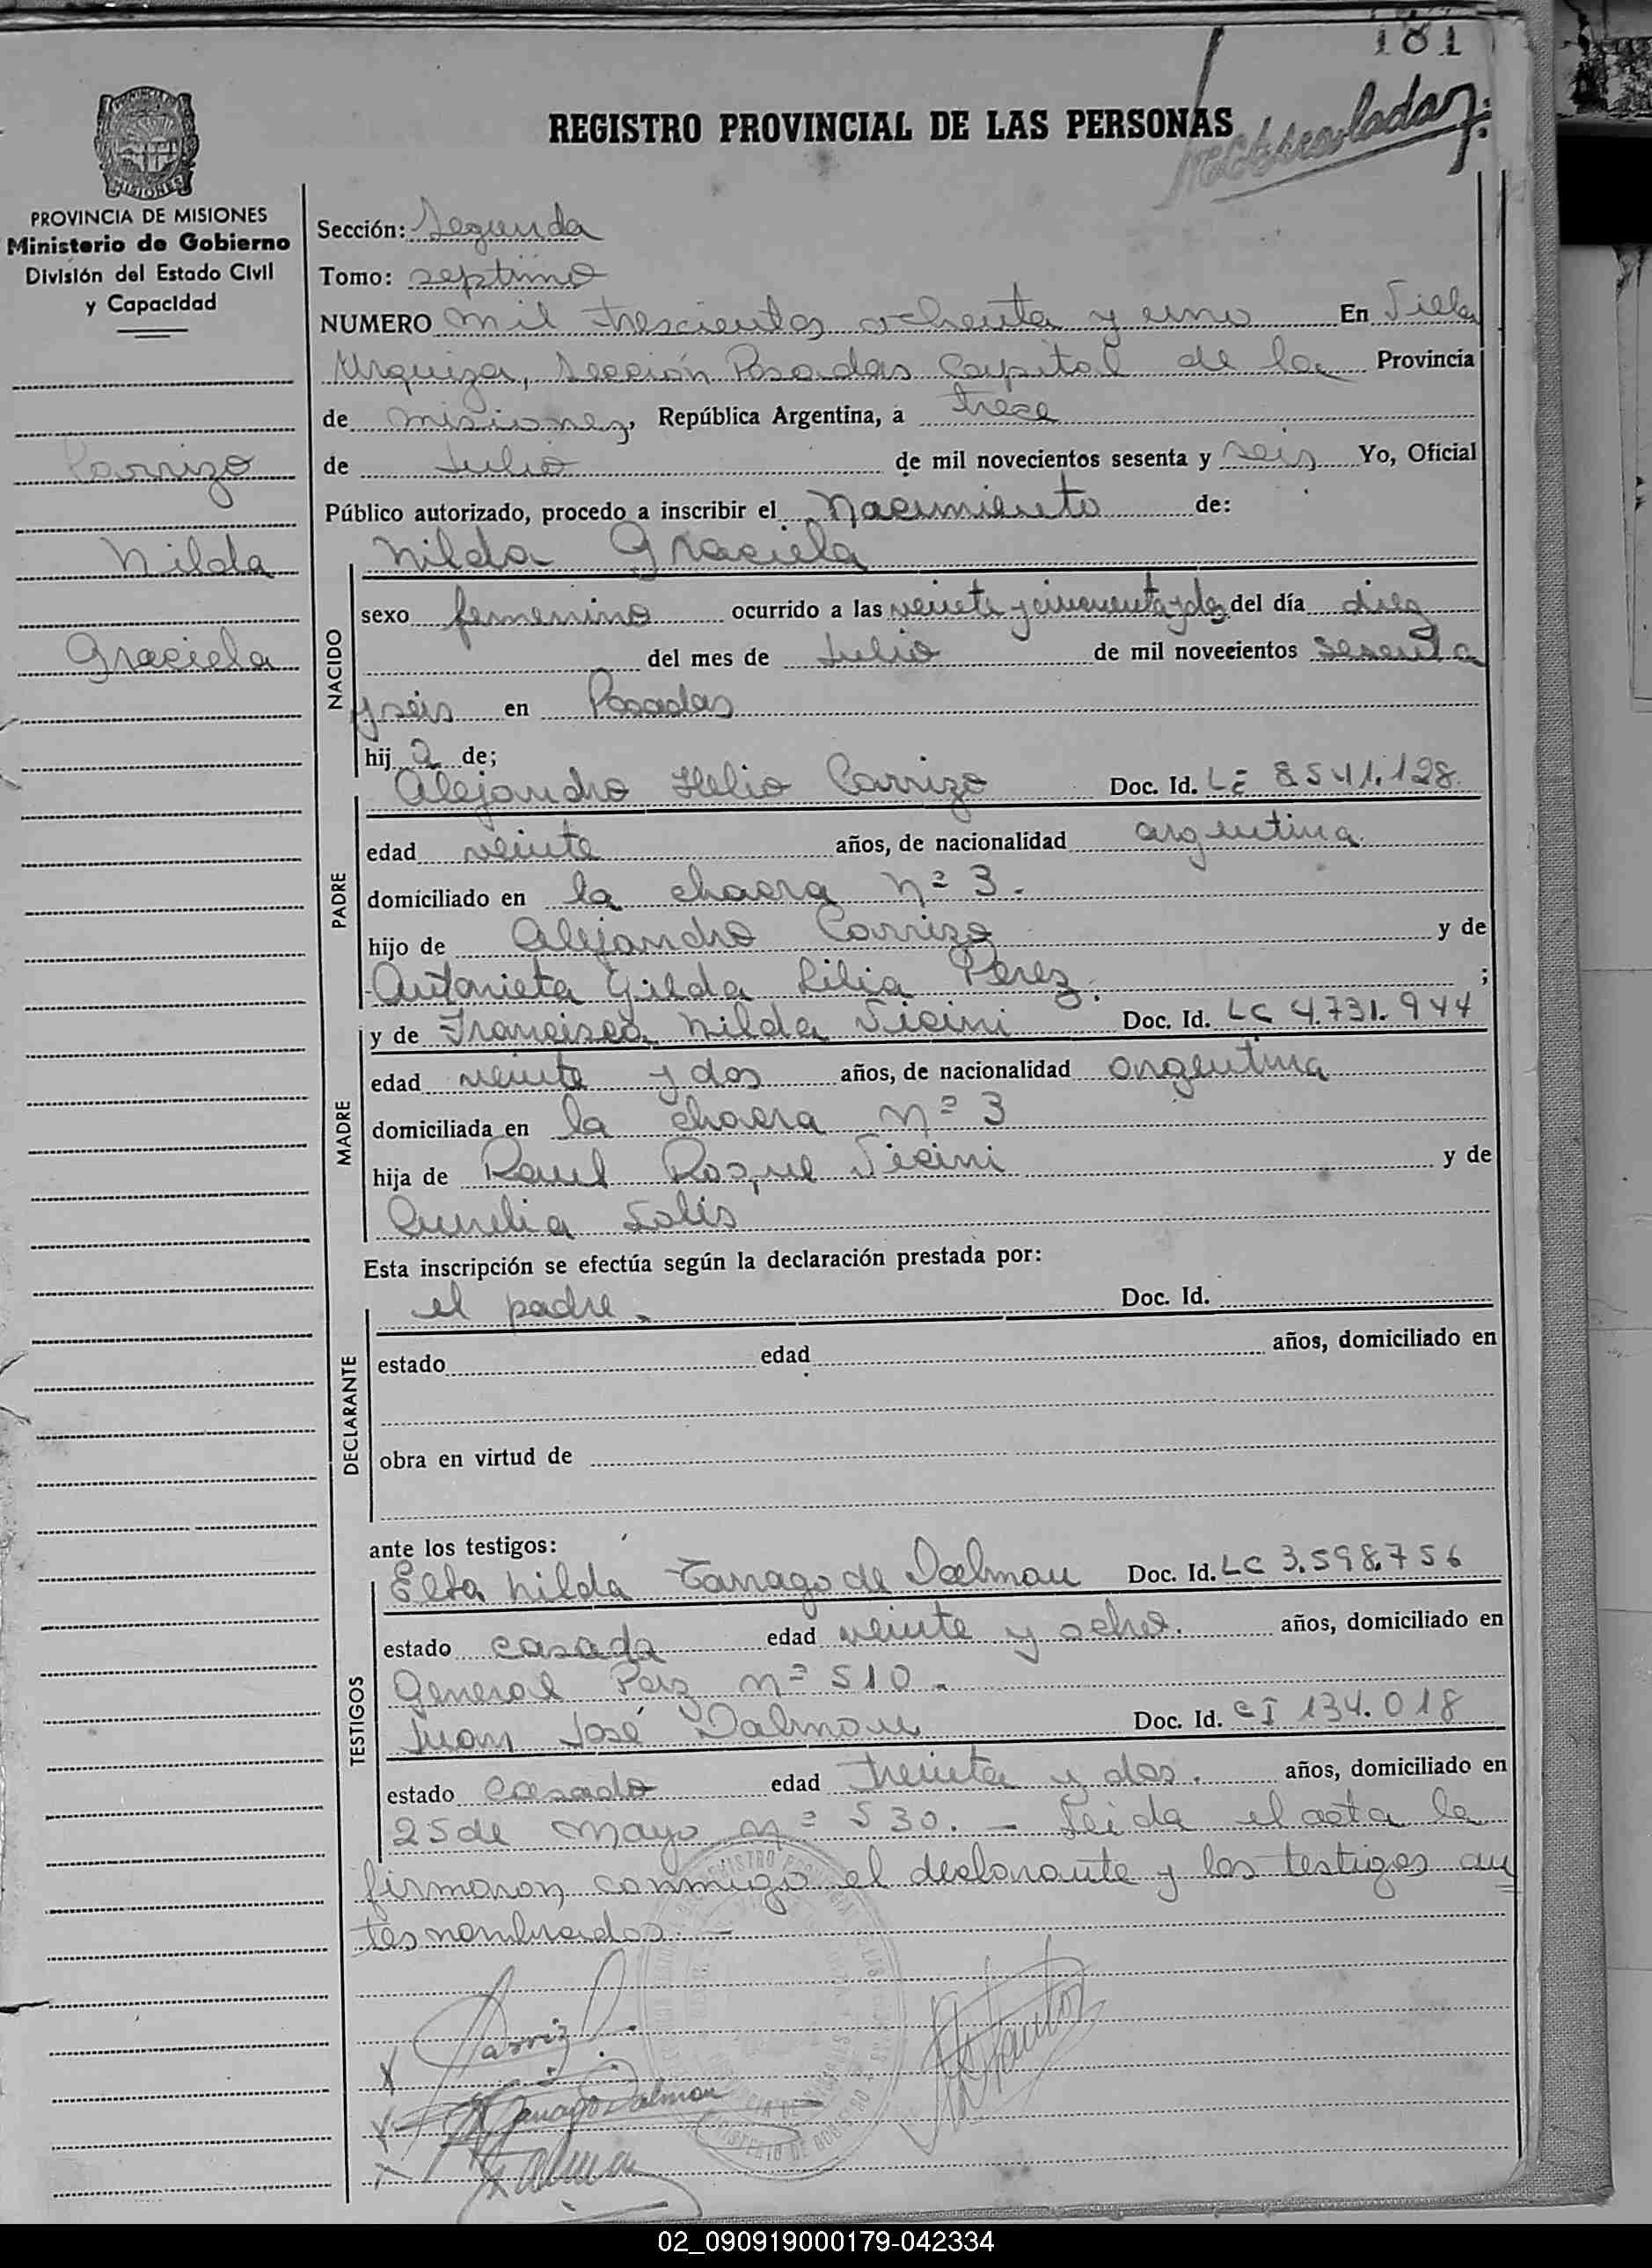 181
REGISTRO PROVINCIAL DE LAS PERSONAS
PROVINCIA DE MISIONES
Ministerio de Gobierno
División del Estado Civil
y Capacidad
Carrizo
Nilda
Graciela
Sección: Segunda
Tomo: septimo
NUMERO mil trescientos ochenta y uno En Villa
Urquiza, Sección Posadas Capital de la Provincia
de misiones, República Argentina, a trece
de Julio de mil novecientos sesenta y seis Yo, Oficial
Público autorizado, procedo a inscribir el Nacimiento de:
Nilda Graciela
NACIDO
sexo femenino ocurrido a las veinte y cincuenta y dos del día diez
del mes de Julio de mil novecientos sesenta
y seis en Posadas
hij a de;
PADRE
Alejandro Helio Carrizo Doc. Id. LE 8541.128.
edad veinte años, de nacionalidad argentina.
domiciliado en la chacra nº 3.
hijo de Alejandro Carrizo y de
Antonieta Gilda Lilia Perez. ;
MADRE
y de Francisca Nilda Vicini Doc. Id. LC 4.731.944
edad veinte y dos años, de nacionalidad argentina
domiciliada en la chacra nº 3
hija de Raul Roque Vicini y de
Aurelia Solis
Esta inscripción se efectúa según la declaración prestada por:
DECLARANTE
el padre. Doc. Id.
estado edad años, domiciliado en
obra en virtud de
ante los testigos:
TESTIGOS
Elba Nilda Tarrago de Dalmau Doc. Id. LC 3.598.756
estado casada edad veinte y ocho. años, domiciliado en
General Paz nº 510.
Juan José Dalmau Doc. Id. CI 134.018
estado casado edad treinta y dos. años, domiciliado en
25 de mayo nº 530. - Leida el acta la
firmaron conmigo el declarante y los testigos an
tes nombrados. -
02_090919000179-042334